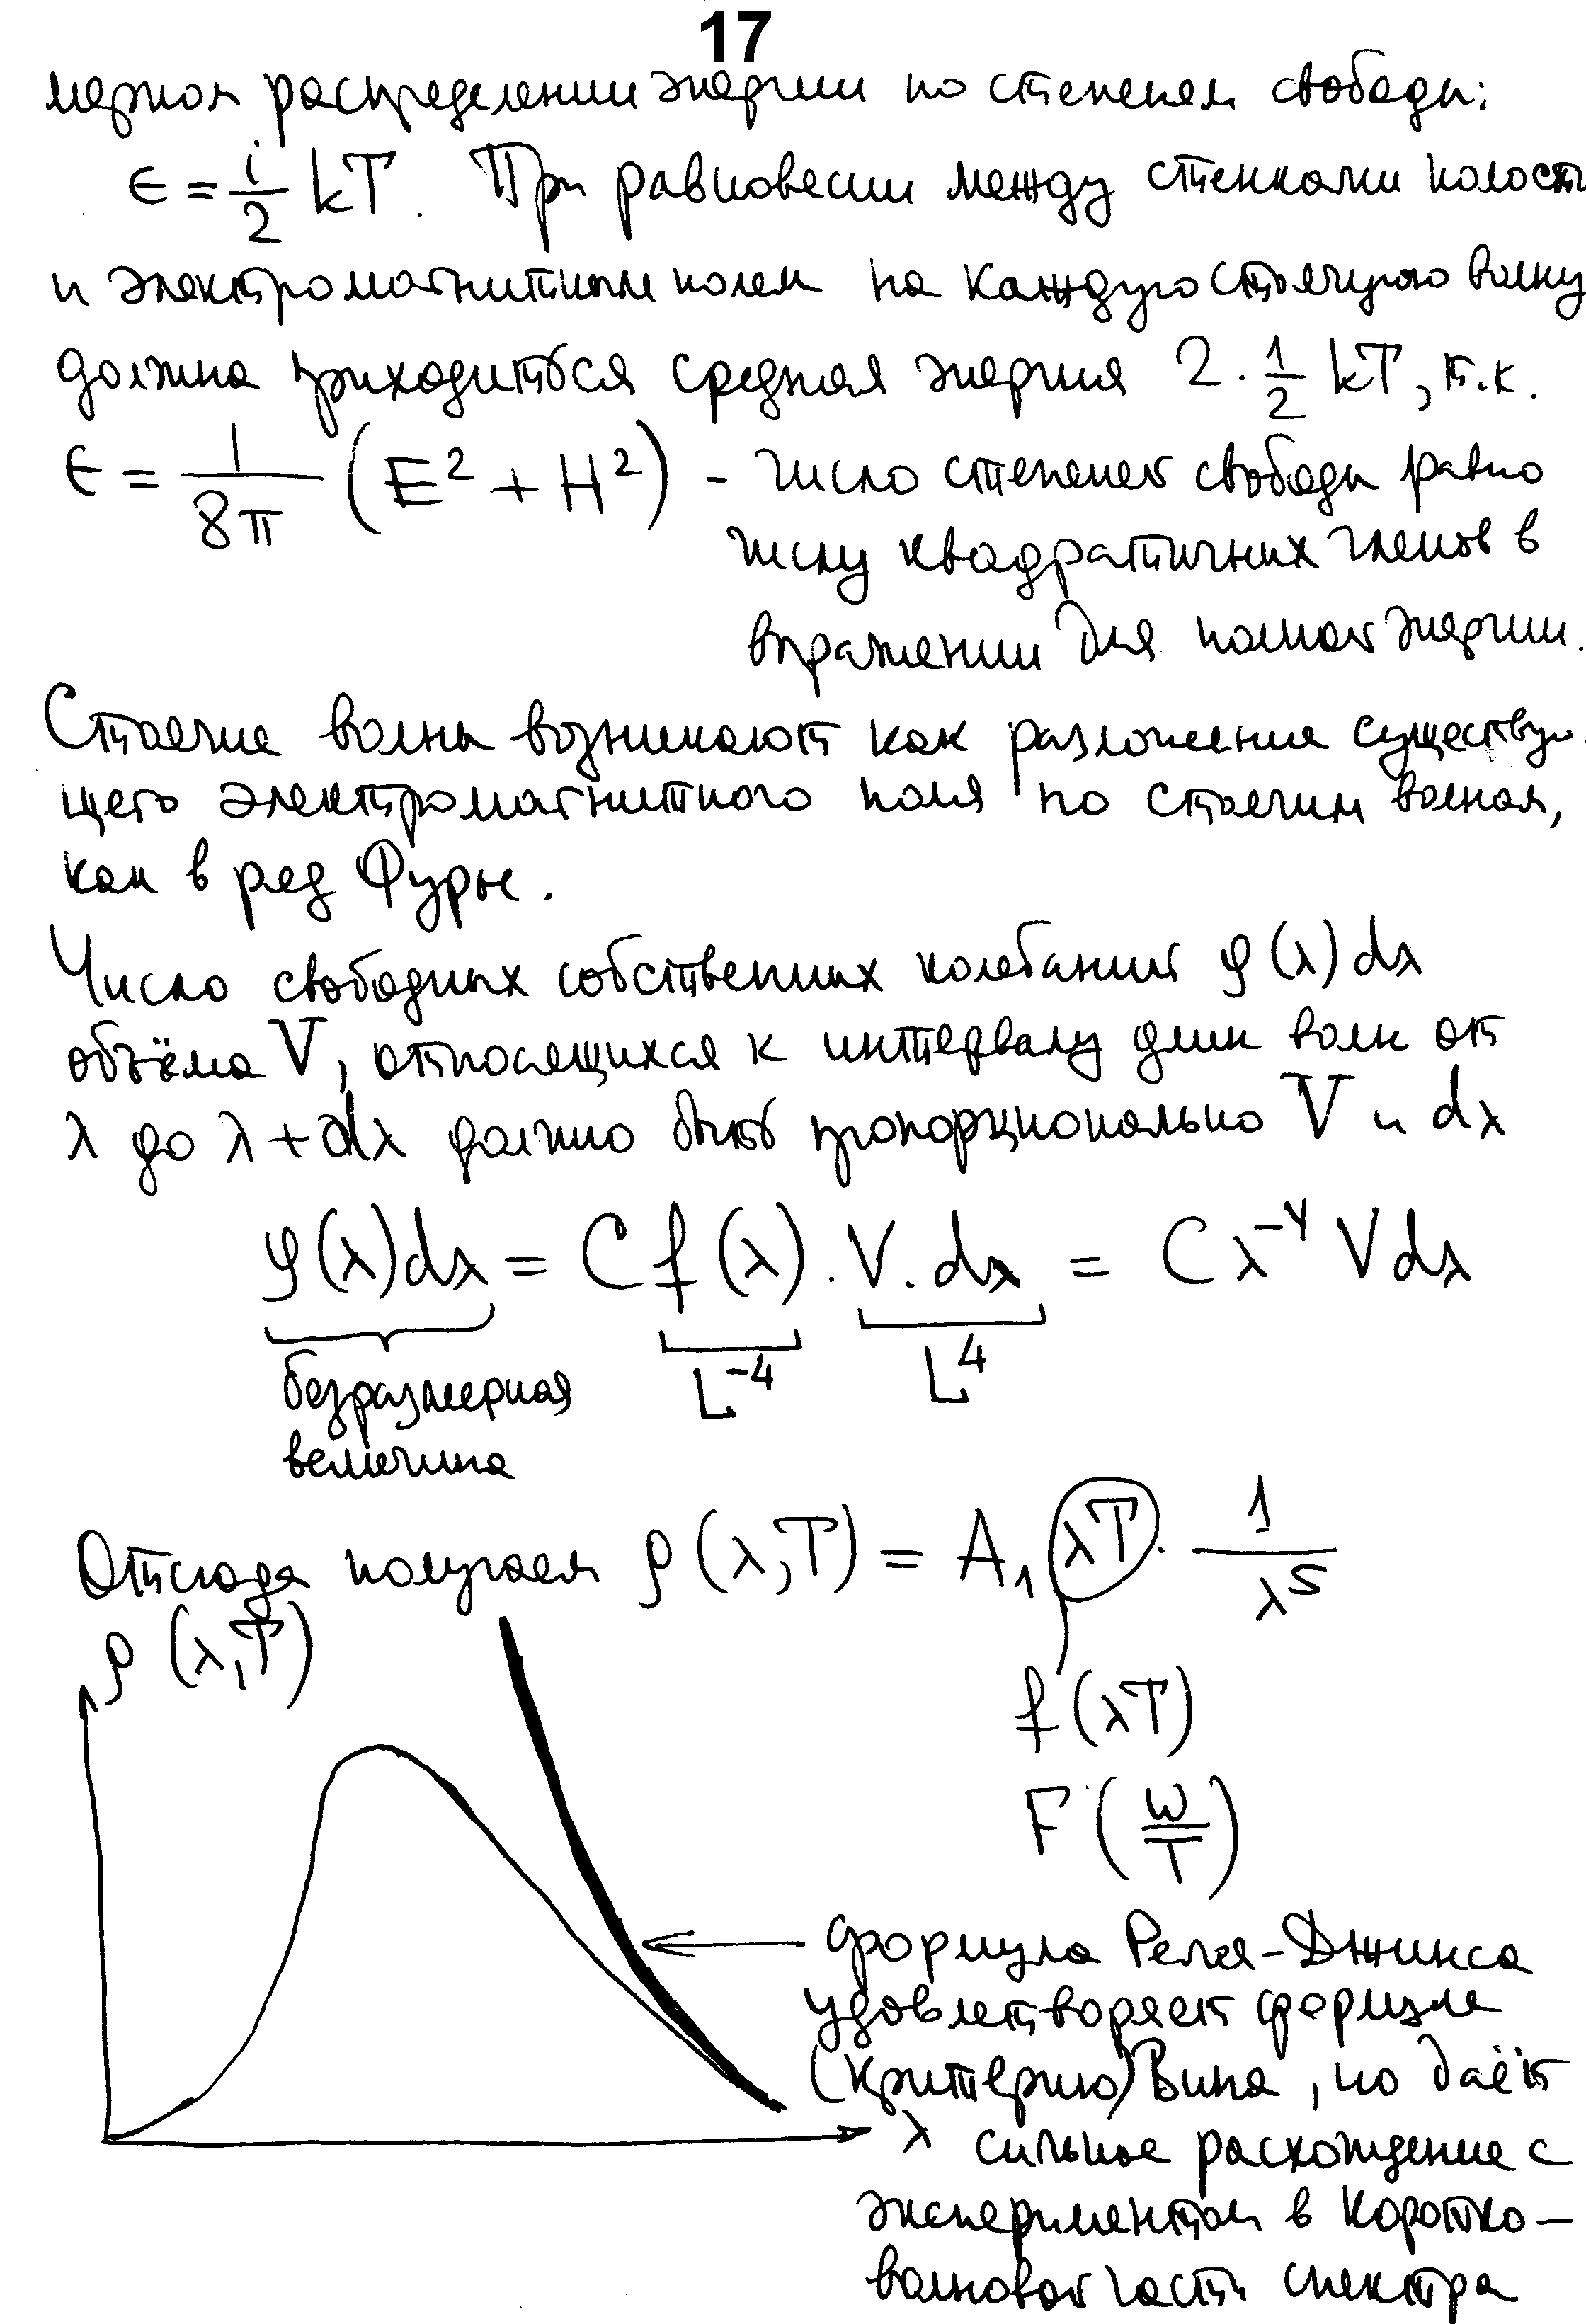 17
мерном распределении энергии по степеням свободы:
ϵ = i/2 kT. При равновесии между стенками полости
и электромагнитным полем на каждую стоячую волну
должна приходиться средняя энергия 2 · 1/2 kT, т.к.
ϵ = 1/8π (E² + H²) - число степеней свободы равно
числу квадратичных членов в
выражении для полной энергии.
Стоячие волны возникают как разложения существую-
щего электромагнитного поля по стоячим волнам,
как в ряд Фурье.
Число свободных собственных колебаний φ(λ)dλ
объёма V, относящихся к интервалу длин волн от
λ до λ+dλ должно быть пропорционально V и dλ
φ(λ)dλ = C f(λ) · V · dλ = C λ⁻⁴ V dλ
безразмерная L⁻⁴ L⁴
величина
Отсюда получаем ρ(λ,T) = A₁ λT · 1/λ⁵
ρ(λ,T)
f(λT)
F(ω/T)
формула Релея-Джинса
удовлетворяет формуле
(критерию) Вина, но даёт
λ сильное расхождение с
экспериментом в коротко-
волновой части спектра